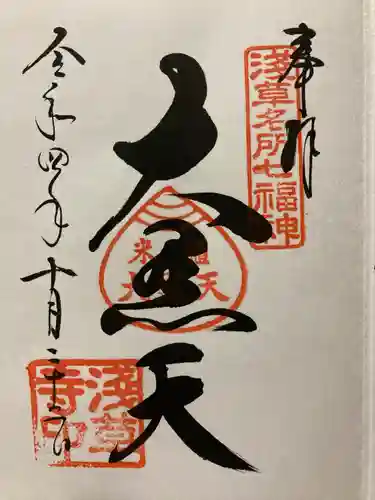 奉拝
浅草名所七福神
大黒天
令和四年十月二十二日
浅草寺印